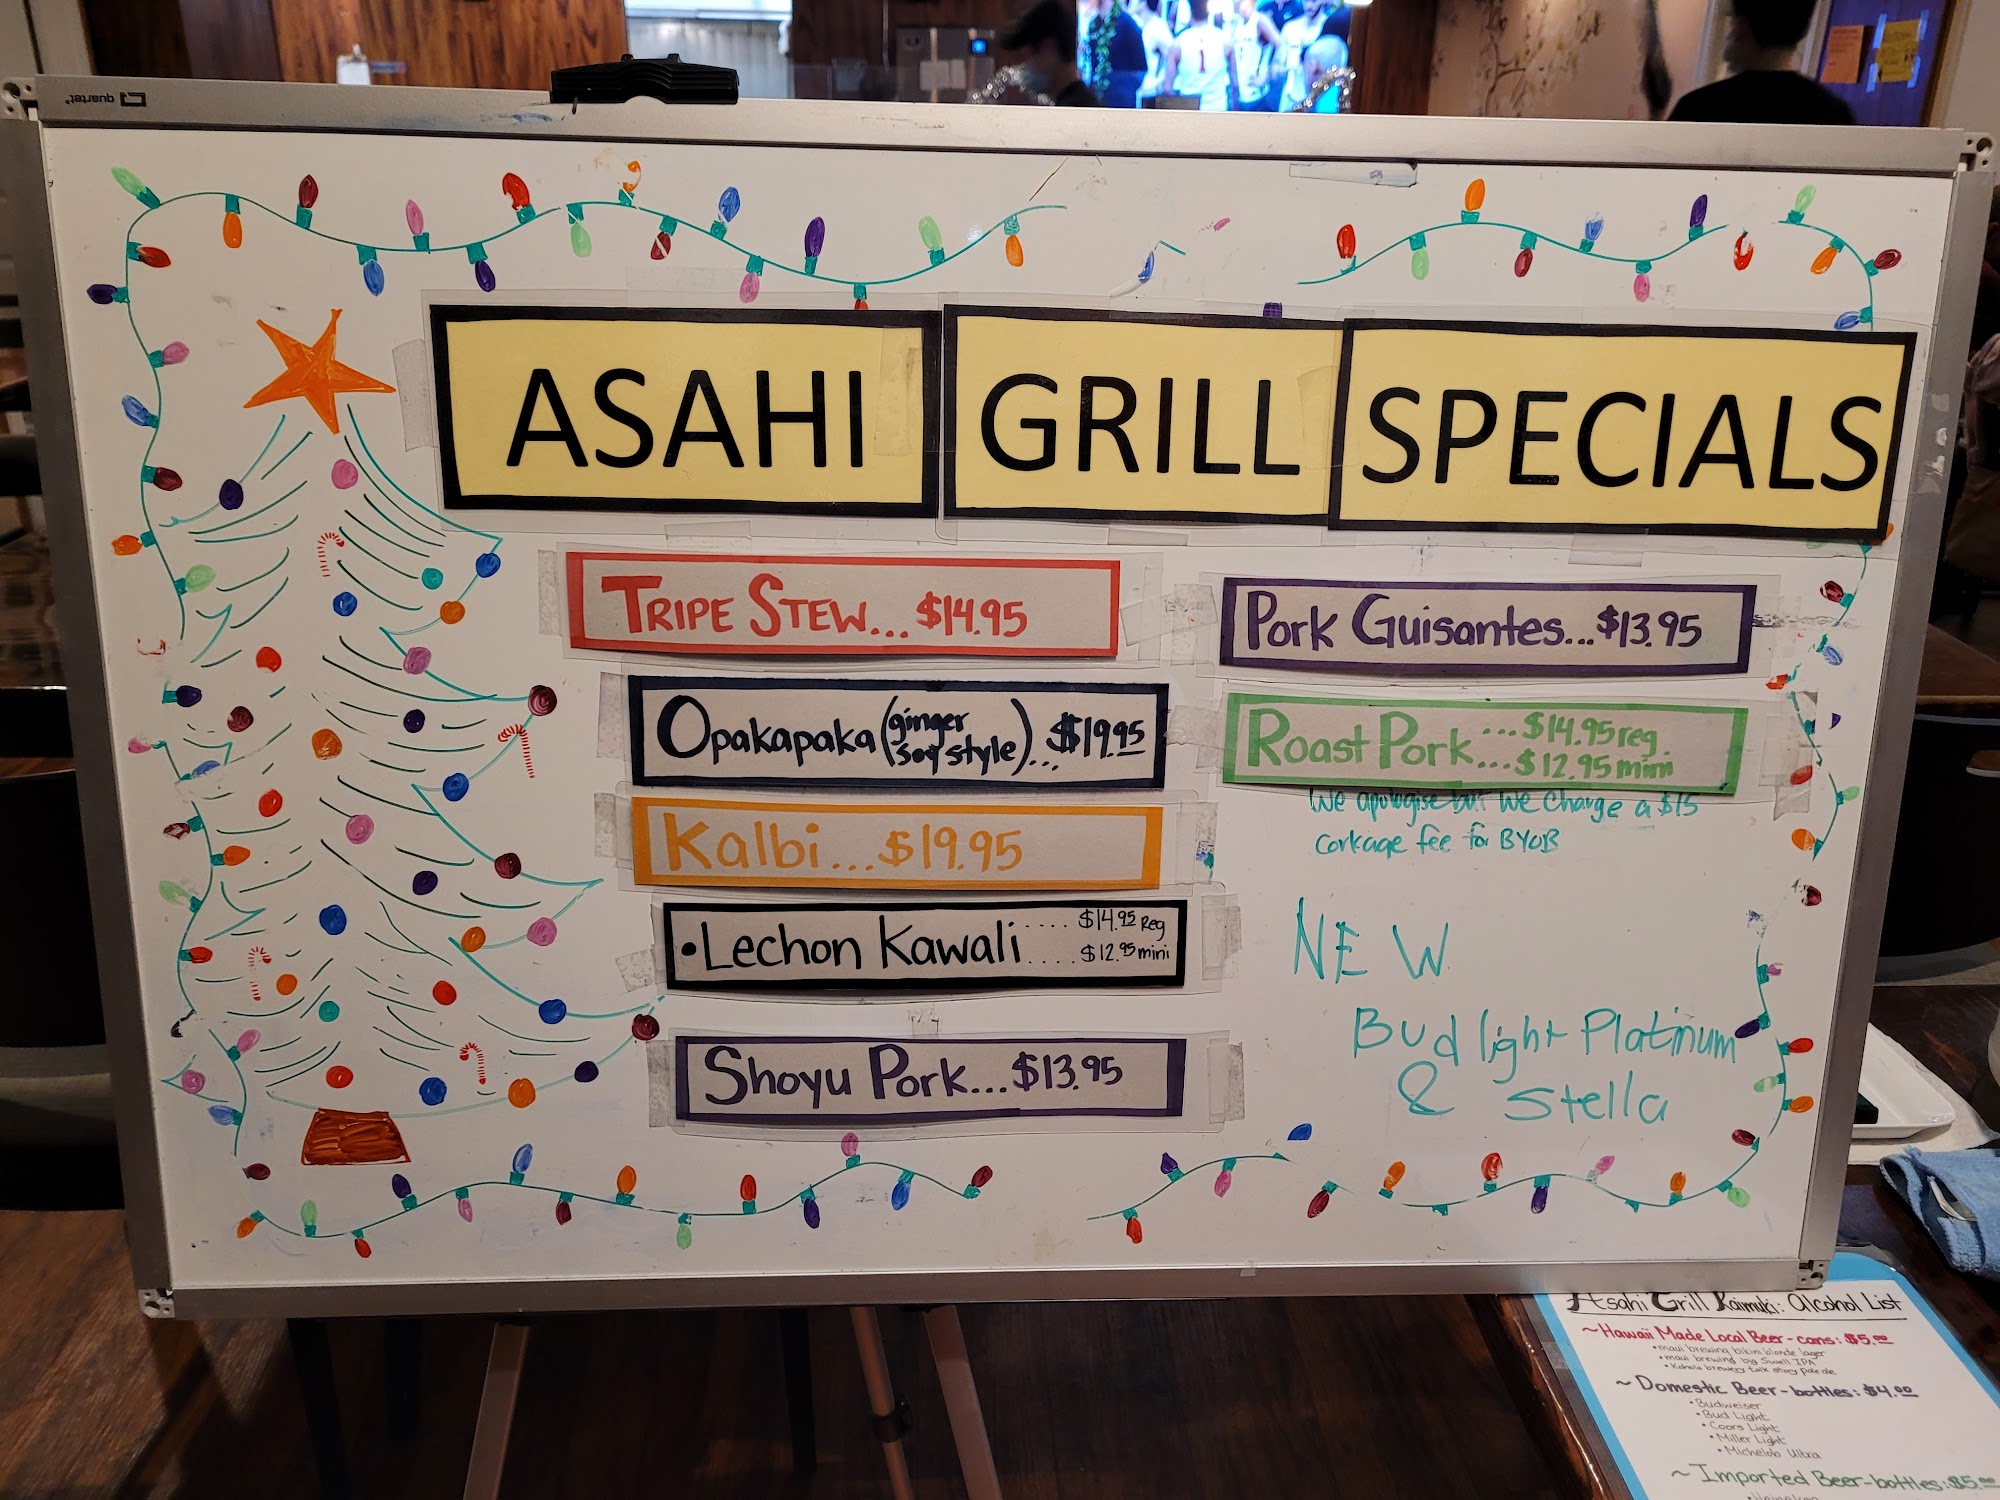 quartet
ASAHI GRILL SPECIALS
TRIPE STEW... $14.95
Opakapaka (ginger soy style)... $19.95
Kalbi... $19.95
• Lechon Kawali .... $14.95 Reg
.... $12.95 mini
Shoyu Pork... $13.95
Pork Guisantes... $13.95
Roast Pork ... $14.95 reg.
... $12.95 mini
We apologise but we charge a $15
corkage fee for BYOB
NEW
Bud light Platinum
& Stella
Asahi Grill Kaimuki: Alcohol List
~ Hawaii Made Local Beer - cans: $5.00
• maui brewing bikini blonde lager
• maui brewing big Swell IPA
• Kohola brewery talk story pale ale
~ Domestic Beer - bottles: $4.00
• Budweiser
• Bud Light
• Coors Light
• Miller Light
• Michelob Ultra
~ Imported Beer - bottles: $5.00
• Heineken